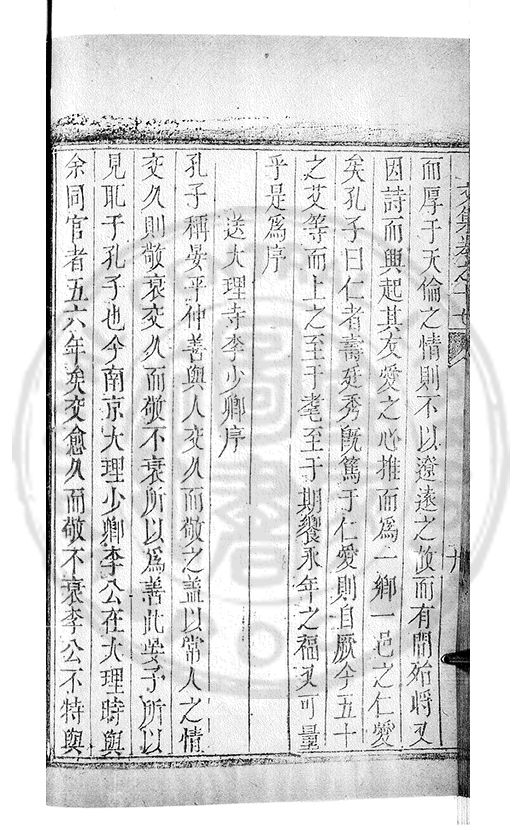 文集卷之十七
十
而厚于天倫之情則不以遼遠之故而有間殆將又
因詩而興起其友愛之心推而爲一鄉一邑之仁愛
矣孔子曰仁者壽延秀旣篤于仁愛則自厥今五十
之艾等而上之至于耄至于期饗永年之福又可量
乎是爲序
送大理寺李少卿序
孔子稱晏平仲善與人交久而敬之盖以常人之情
交久則敬衰交久而敬不衰所以爲善此晏子所以
見取于孔子也今南京大理少卿李公在大理時與
余同官者五六年矣交愈久而敬不衰李公不特與